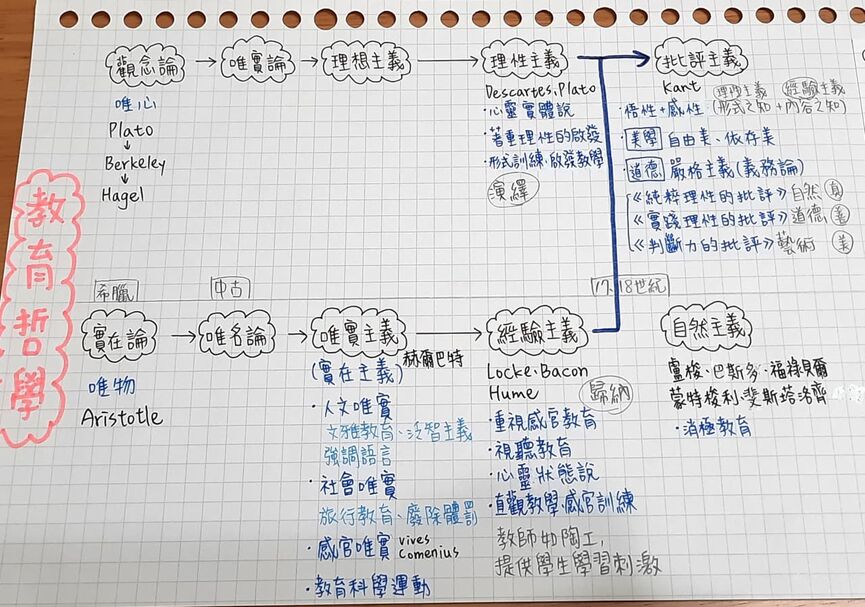 教育哲學
觀念論 → 唯實論 → 理想主義 → 理性主義 → 批評主義
唯心
Plato
↓
Berkeley
↓
Hagel
Descartes、Plato
・心靈實體說
・著重理性的啟發
・形式訓練、啟發教學
演繹
Kant
理性主義 經驗主義
・悟性+感性(形式之知+內容之知)
・美學 自由美、依存美
・道德 嚴格主義(義務論)
《純粹理性的批評》自然 真
《實踐理性的批評》道德 善
《判斷力的批評》藝術 美
希臘 中古 17、18世紀
實在論 → 唯名論 → 唯實主義 → 經驗主義 自然主義
唯物
Aristotle
(實在主義) 赫爾巴特
・人文唯實
文雅教育、泛智主義
強調語言
・社會唯實
旅行教育、廢除體罰
・感官唯實 vives
Comenius
・教育科學運動
Locke、Bacon
Hume 歸納
・重視感官教育
・視聽教育
・心靈狀態說
・直觀教學、感官訓練
教師如陶工,
提供學生學習刺激
盧梭、巴斯多、福祿貝爾
蒙特梭利、斐斯塔洛齊
・消極教育